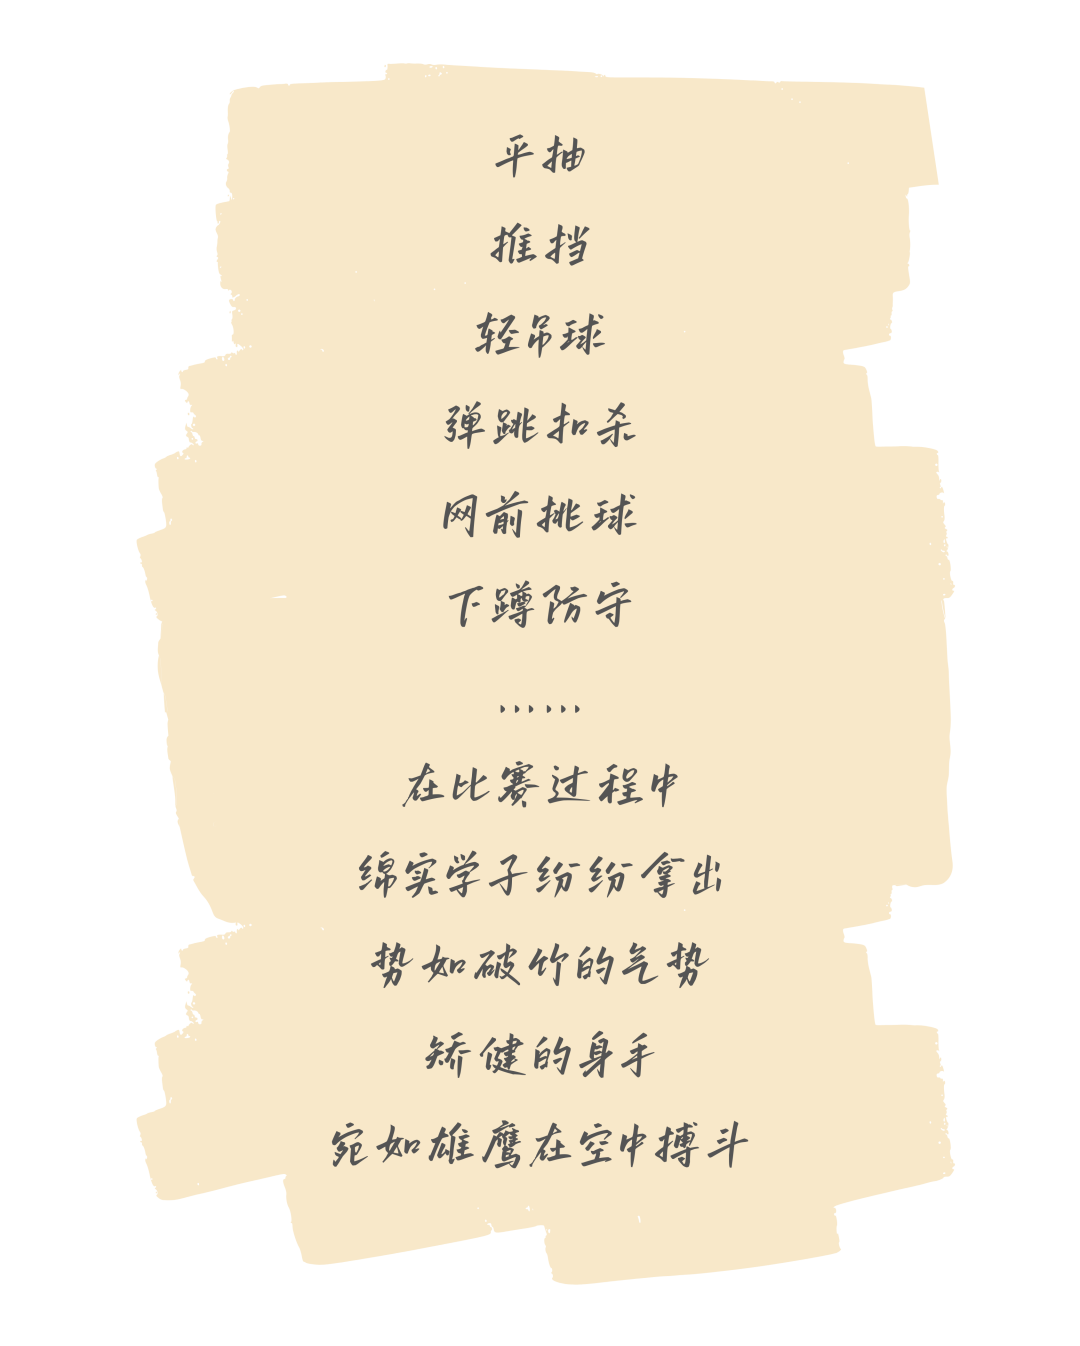 平抽
推挡
轻吊球
弹跳扣杀
网前挑球
下蹲防守
……
在比赛过程中
绵实学子纷纷拿出
势如破竹的气势
矫健的身手
宛如雄鹰在空中搏斗